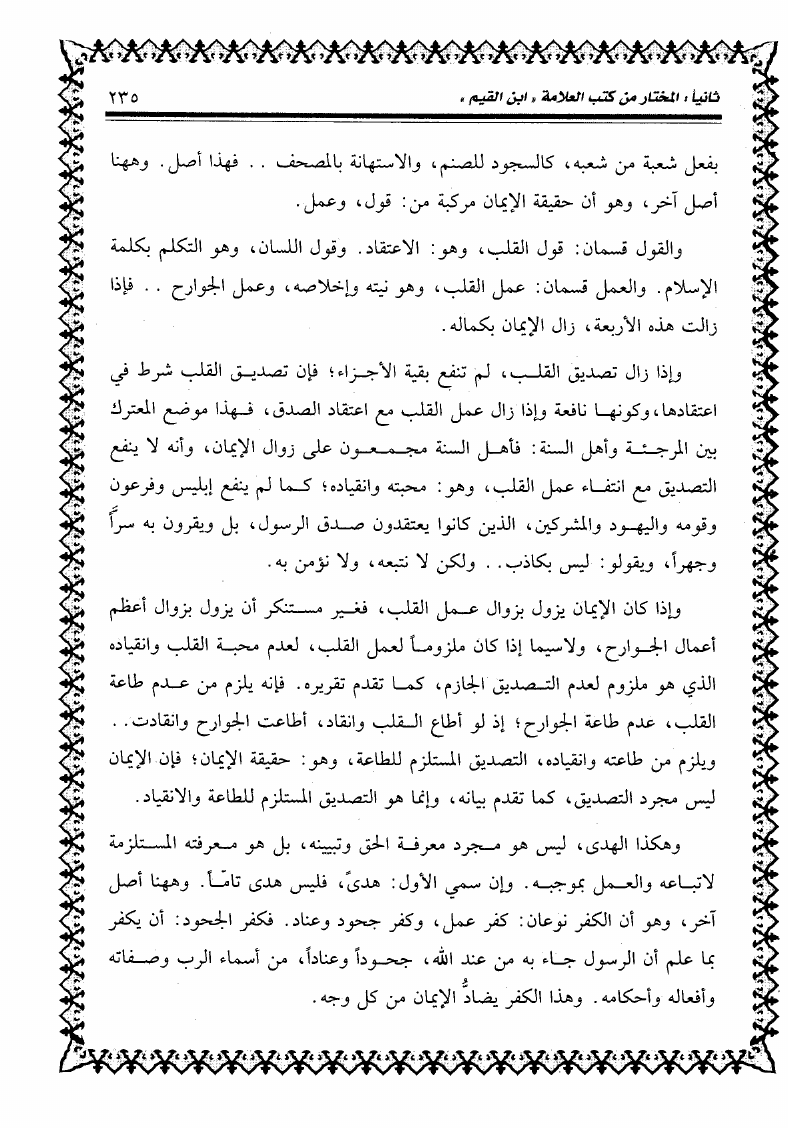 ثانياً: المختار من كتب العلامة «ابن القيم» ٢٣٥
بفعل شعبة من شعبه، كالسجود للصنم، والاستهانة بالمصحف . . فهذا أصل. وههنا
أصل آخر، وهو أن حقيقة الإيمان مركبة من: قول، وعمل.
والقول قسمان: قول القلب، وهو: الاعتقاد. وقول اللسان، وهو التكلم بكلمة
الإسلام. والعمل قسمان: عمل القلب، وهو نيته وإخلاصه، وعمل الجوارح . . فإذا
زالت هذه الأربعة، زال الإيمان بكماله.
وإذا زال تصديق القلب، لم تنفع بقية الأجزاء؛ فإن تصديق القلب شرط في
اعتقادها، وكونها نافعة وإذا زال عمل القلب مع اعتقاد الصدق، فهذا موضع المعترك
بين المرجئة وأهل السنة: فأهل السنة مجمعون على زوال الإيمان، وأنه لا ينفع
التصديق مع انتفاء عمل القلب، وهو: محبته وانقياده؛ كما لم ينفع إبليس وفرعون
وقومه واليهود والمشركين، الذين كانوا يعتقدون صدق الرسول، بل ويقرون به سراً
وجهراً، ويقولو: ليس بكاذب. . ولكن لا نتبعه، ولا نؤمن به.
وإذا كان الإيمان يزول بزوال عمل القلب، فغير مستنكر أن يزول بزوال أعظم
أعمال الجوارح، ولاسيما إذا كان ملزوماً لعمل القلب، لعدم محبة القلب وانقياده
الذي هو ملزوم لعدم التصديق الجازم، كما تقدم تقريره. فإنه يلزم من عدم طاعة
القلب، عدم طاعة الجوارح؛ إذ لو أطاع القلب وانقاد، أطاعت الجوارح وانقادت. .
ويلزم من طاعته وانقياده، التصديق المستلزم للطاعة، وهو: حقيقة الإيمان؛ فإن الإيمان
ليس مجرد التصديق، كما تقدم بيانه، وإنما هو التصديق المستلزم للطاعة والانقياد.
وهكذا الهدى، ليس هو مجرد معرفة الحق وتبيينه، بل هو معرفته المستلزمة
لاتباعه والعمل بموجبه. وإن سمي الأول: هدىً، فليس هدى تامّاً. وههنا أصل
آخر، وهو أن الكفر نوعان: كفر عمل، وكفر جحود وعناد. فكفر الجحود: أن يكفر
بما علم أن الرسول جاء به من عند الله، جحوداً وعناداً، من أسماء الرب وصفاته
وأفعاله وأحكامه. وهذا الكفر يضادُّ الإيمان من كل وجه.